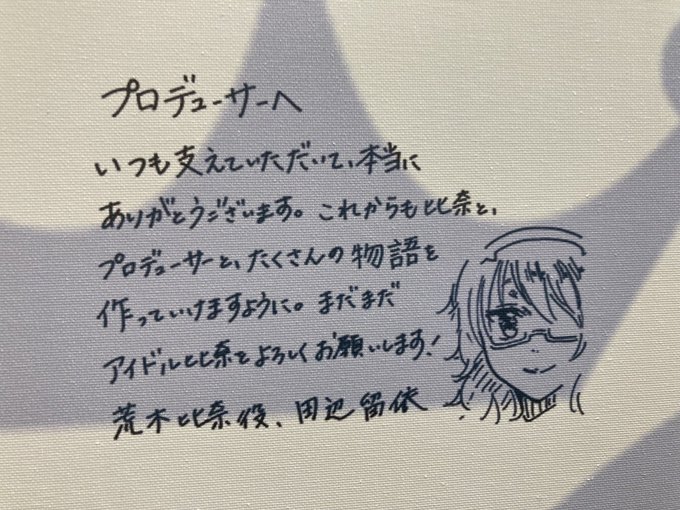 プロデューサーへ
いつも支えていただいて、本当に
ありがとうございます。これからも比奈と、
プロデューサーと、たくさんの物語を
作っていけますように。まだまだ
アイドル比奈をよろしくお願いします!
荒木比奈役、田辺留依